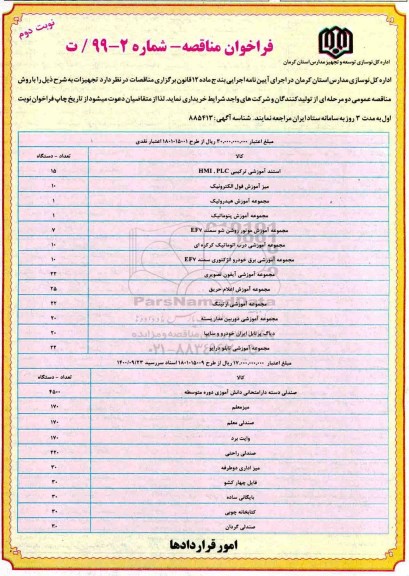 نوبت دوم
فراخوان مناقصه- شماره ۲-۹۹ / ت
اداره کل نوسازی توسعه و تجهیز مدارس استان کرمان
اداره کل نوسازی مدارس استان کرمان در اجرای آیین نامه اجرایی بند ج ماده ۱۲ قانون برگزاری مناقصات در نظر دارد تجهیزات به شرح ذیل را با روش
مناقصه عمومی دو مرحله ای از تولید کنندگان و شرکت های واجد شرایط خریداری نماید. لذا از متقاضیان دعوت میشود از تاریخ چاپ فراخوان نوبت
اول به مدت ۳ روز به سامانه ستاد ایران مراجعه نمایند. شناسه آگهی: ۸۸۵۴۱۳
مبلغ اعتبار ۳۰،۰۰۰،۰۰۰،۰۰۰ ریال از طرح ۱۸۰۱۰۱۵۰۰۱ اعتبار نقدی
کالا تعداد - دستگاه
استند آموزشی ترکیبی HMI , PLC ۱۵
میز آموزش فول الکترونیک ۱۰
مجموعه آموزش هیدرولیک ۱
مجموعه آموزش پنوماتیک ۱
مجموعه آموزش موتور روشن شو سمند EF۷ ۷
مجموعه آموزشی درب اتوماتیک کرکره ای ۱۰
مجموعه آموزشی برق خودرو انژکتوری سمند EF۷ ۱۰
مجموعه آموزشی آیفون تصویری ۲۳
مجموعه آموزش اعلام حریق ۲۵
مجموعه آموزشی ارتینگ ۲۲
مجموعه آموزشی دوربین مدار بسته ۲۰
دیاگ پرتابل ایران خودرو و سایپا ۲۰
مجموعه آموزشی تابلو درایو ۲۲
مبلغ اعتبار ۱۷،۰۰۰،۰۰۰،۰۰۰ ریال از طرح ۱۸۰۱۰۱۵۰۰۹ اسناد سررسید ۱۴۰۰/۰۹/۲۳
کالا تعداد - دستگاه
صندلی دسته دار امتحانی دانش آموزی دوره متوسطه ۴۵۰۰
میز معلم ۱۷۰
صندلی معلم ۱۷۰
وایت برد ۱۷۰
صندلی راحتی ۲۲۰
میز اداری دو طرفه ۳۰
فایل چهار کشو ۳۰
بایگانی ساده ۳۰
کتابخانه چوبی ۳۰
صندلی گردان ۳۰
امور قراردادها